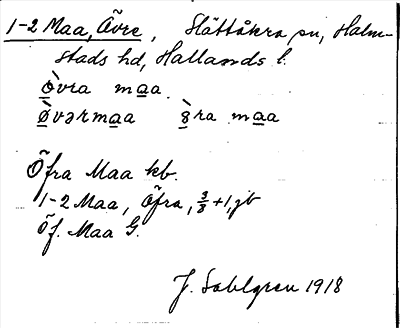 1-2 Maa, Övre, Slättåkra sn, Halm-
stads hd, Hallands l.
ø̀vra maa
ø̀vərmaa ø̀ra maa
Öfra Maa kb.
1-2 Maa, Öfra, 3/8+1, jb
Öf. Maa G.
J. Sahlgren 1918